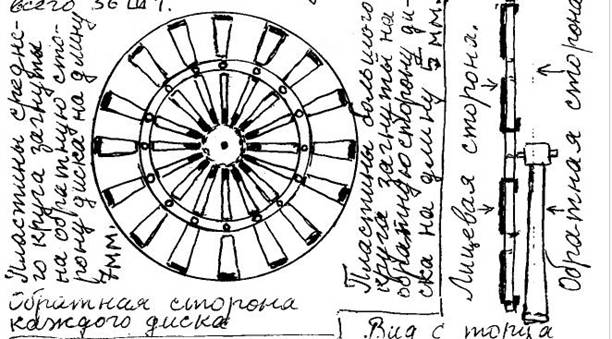 всего 36 шт.
Пластины средне-
го круга загнуты
на обратную сто-
рону диска на длину
7мм.
Обратная сторона
каждого диска
Пластины большого
круга загнуты на
обратную сторону ди-
ска на длину 5 мм.
Лицевая сторона.
Обратная сторона
Вид с торца